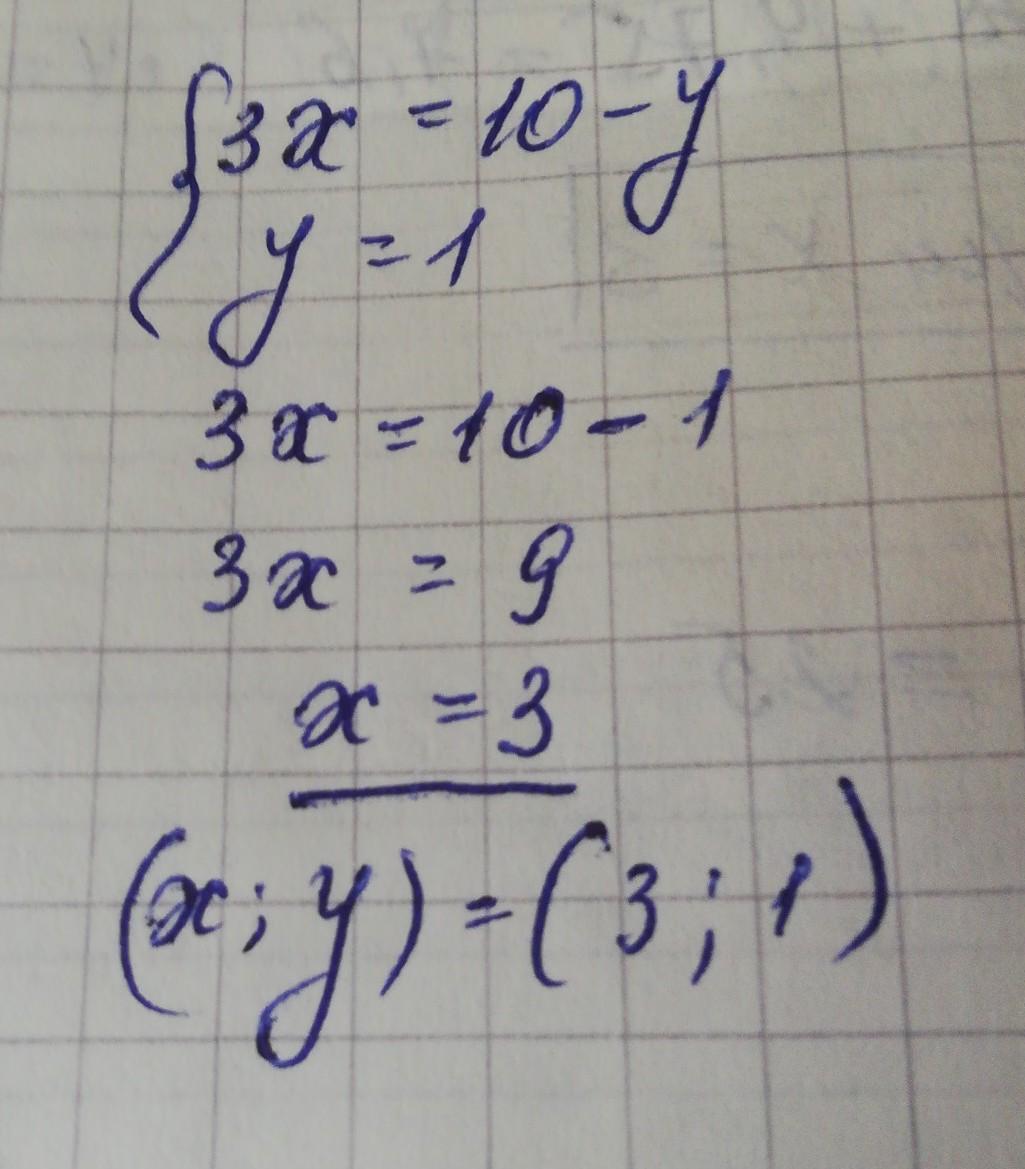 {3x = 10 - y
y = 1
3x = 10 - 1
3x = 9
x = 3
(x; y) = (3; 1)